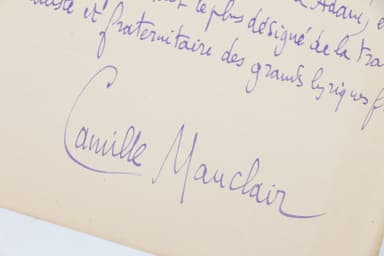 Adam,
le plus désigné de la tra
et fraternitaire des grands lyriques f
Camille Mauclair